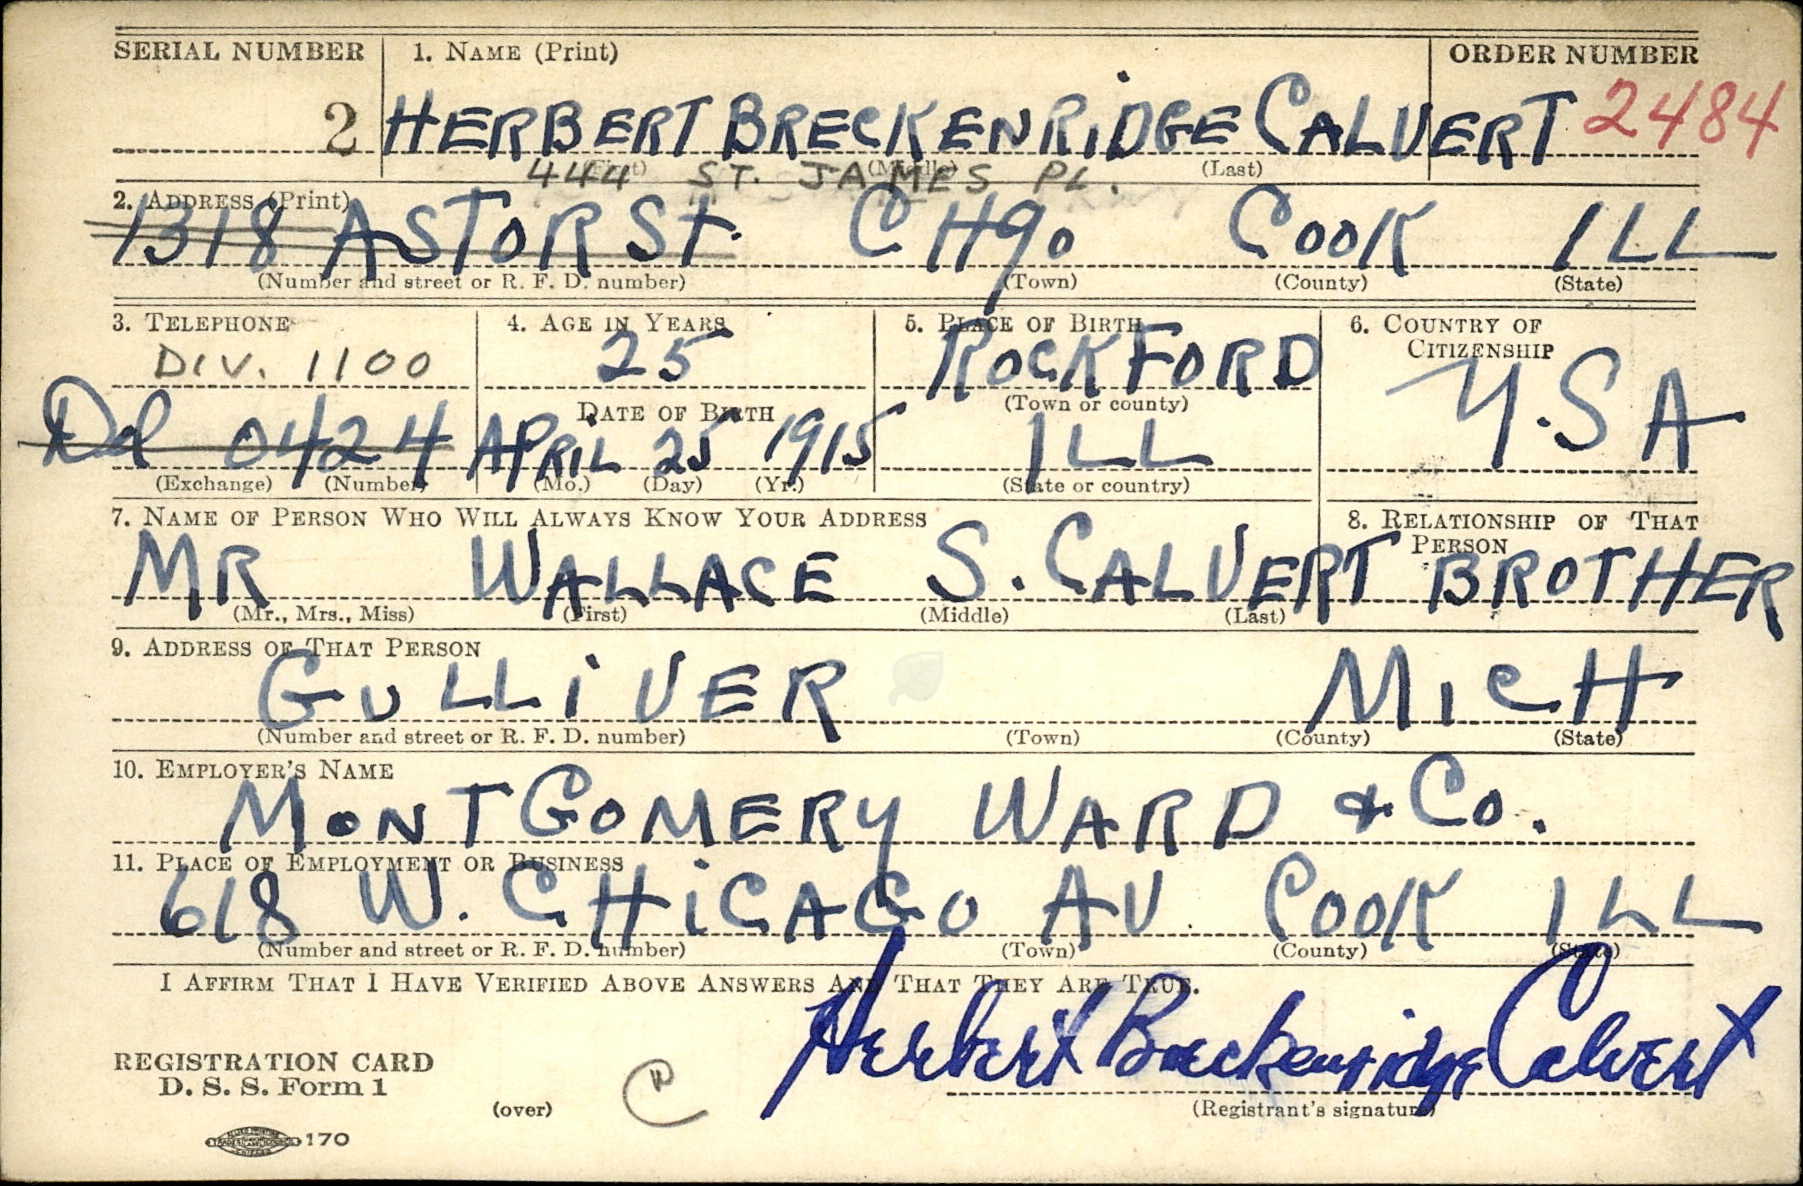 SERIAL NUMBER 1. NAME (Print) ORDER NUMBER
2 HERBERT BRECKENRIDGE CALVERT 2484
(First) (Middle) (Last)
444 ST. JAMES PL.
2. ADDRESS (Print)
1318 ASTOR ST. CHgo COOK ILL
(Number and street or R. F. D. number) (Town) (County) (State)
3. TELEPHONE 4. AGE IN YEARS 5. PLACE OF BIRTH 6. COUNTRY OF CITIZENSHIP
DIV. 1100 25 ROCKFORD U.S.A
DATE OF BIRTH (Town or county)
Del 0424 APRiL 25 1915 ILL
(Exchange) (Number) (Mo.) (Day) (Yr.) (State or country)
7. NAME OF PERSON WHO WILL ALWAYS KNOW YOUR ADDRESS 8. RELATIONSHIP OF THAT PERSON
MR WALLACE S. CALVERT BROTHER
(Mr., Mrs., Miss) (First) (Middle) (Last)
9. ADDRESS OF THAT PERSON
GULLiVER MICH
(Number and street or R. F. D. number) (Town) (County) (State)
10. EMPLOYER'S NAME
MONTGOMERY WARD & Co.
11. PLACE OF EMPLOYMENT OR BUSINESS
618 W. CHiCAGO AV. COOK ILL
(Number and street or R. F. D. number) (Town) (County) (State)
I AFFIRM THAT I HAVE VERIFIED ABOVE ANSWERS AND THAT THEY ARE TRUE.
Herbert Breckenridge Calvert
REGISTRATION CARD
D. S. S. Form 1
(over) (Registrant's signature)
170